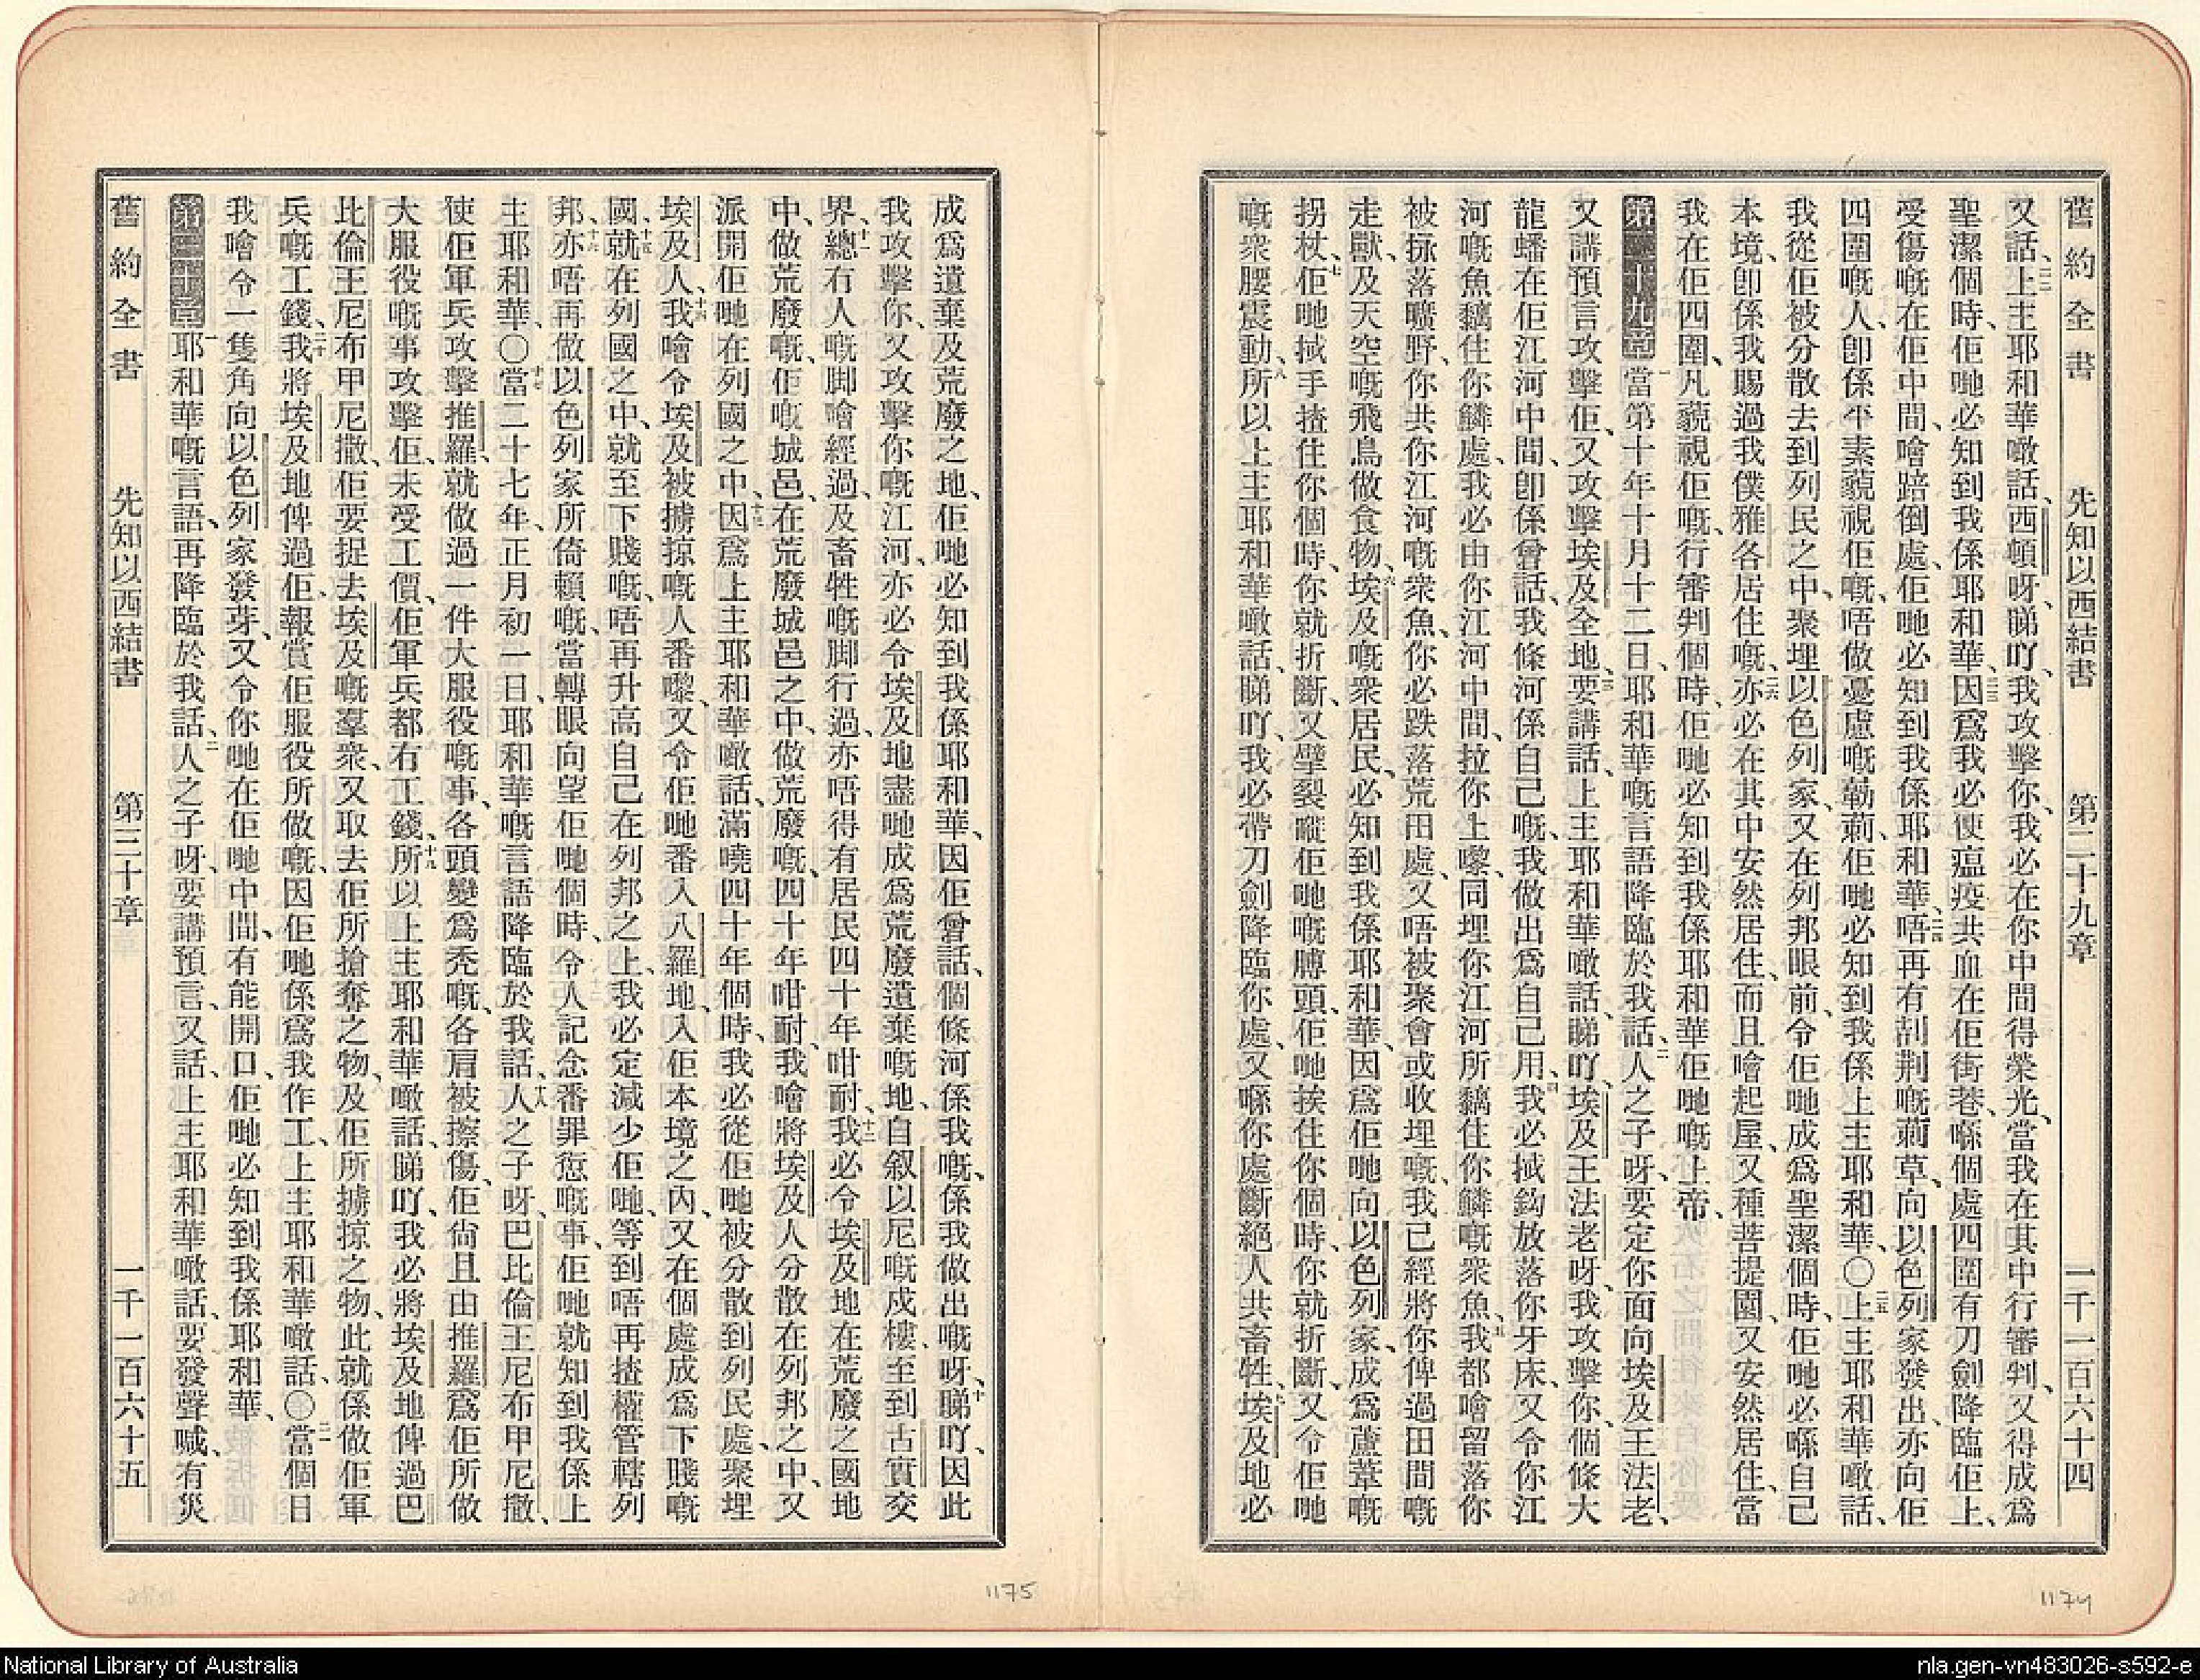 舊約全書 先知以西結書 第二十九章 一千一百六十四
又話、二二上主耶和華噉話、西頓呀、睇吖、我攻擊你、我必在你中間得榮光、當我在其中行審判、又得成爲
聖潔個時、佢哋必知到我係耶和華、二三因爲我必使瘟疫共血在佢街巷、喺個處四圍有刀劍降臨佢上、
受傷嘅在佢中間、噲踣倒處、佢哋必知到我係耶和華、二四唔再有刮荆嘅蕳草、向以色列家發出、亦向佢
四圍嘅人、卽係平素藐視佢嘅、唔做憂慮嘅簕蕳、佢哋必知到我係上主耶和華、〇二五上主耶和華噉話、
我從佢被分散去到列民之中、聚埋以色列家、又在列邦眼前、令佢哋成爲聖潔個時、佢哋必喺自己
本境、卽係我賜過我僕雅各居住嘅、二六亦必在其中安然居住、而且噲起屋、又種菩提園、又安然居住、當
我在佢四圍、凡藐視佢嘅、行審判個時、佢哋必知到我係耶和華佢哋嘅上帝、
第二十九章 一當第十年十月十二日、耶和華嘅言語降臨於我話、二人之子呀、要定你面向埃及王法老、
又講預言攻擊佢、又攻擊埃及全地、三要講話、上主耶和華噉話、睇吖、埃及王法老呀、我攻擊你、個條大
龍蟠在佢江河中間、卽係曾話、我條河係自己嘅、我做出爲自己用、四我必掝鈎放落你牙床、又令你江
河嘅魚黐住你鱗處、我必由你江河中間、拉你上嚟、同埋你江河所黐住你鱗嘅衆魚、五我都噲留落你
被掁落曠野、你共你江河嘅衆魚、你必跌落荒田處、又唔被聚會或收埋嘅、我已經將你俾過田間嘅
走獸、及天空嘅飛鳥做食物、六埃及嘅衆居民、必知到我係耶和華、因爲佢哋向以色列家、成爲蘆葦嘅
拐杖、七佢哋掝手揸住你個時、你就折斷、又擘裂嘥佢哋嘅膊頭、佢哋挨住你個時、你就折斷、又令佢哋
嘅衆腰震動、八所以上主耶和華噉話、睇吖、我必帶刀劍降臨你處、又喺你處斷絕人共畜牲、九埃及地必
1174
舊約全書 先知以西結書 第三十章 一千一百六十五
成爲遺棄及荒廢之地、佢哋必知到我係耶和華、因佢曾話、個條河係我嘅、係我做出嘅呀、十睇吖、因此
我攻擊你、又攻擊你嘅江河、亦必令埃及地盡哋成爲荒廢遺棄嘅地、自叙以尼嘅戍樓、至到古實交
界、十一總冇人嘅脚噲經過、及畜牲嘅脚行過、亦唔得有居民四十年咁耐、十二我必令埃及地在荒廢之國地
中、做荒廢嘅、佢嘅城邑、在荒廢城邑之中、做荒廢嘅、四十年咁耐、我噲將埃及人分散在列邦之中、又
派開佢哋在列國之中、十三因爲上主耶和華噉話、滿曉四十年個時、我必從佢哋被分散到列民處、聚埋
埃及人、十四我噲令埃及被擄掠嘅人番嚟、又令佢哋番入八羅地、入佢本境之內、又在個處成爲下賤嘅
國、十五就在列國之中、就至下賤嘅、唔再升高自己在列邦之上、我必定減少佢哋、等到唔再揸權管轄列
邦、十六亦唔再做以色列家所倚賴嘅、當轉眼向望佢哋個時、令人記念番罪愆嘅事、佢哋就知到我係上
主耶和華、〇十七當二十七年、正月初一日、耶和華嘅言語降臨於我話、十八人之子呀、巴比倫王尼布甲尼撒、
使佢軍兵攻擊推羅、就做過一件大服役嘅事、各頭變爲禿嘅、各肩被擦傷、佢尙且由推羅爲佢所做
大服役嘅事攻擊佢、未受工價、佢軍兵都冇工錢、十九所以上主耶和華噉話、睇吖、我必將埃及地俾過巴
比倫王尼布甲尼撒、佢要捉去埃及嘅羣衆、又取去佢所搶奪之物、及佢所擄掠之物、此就係做佢軍
兵嘅工錢、二十我將埃及地俾過佢、報賞佢服役所做嘅、因佢哋係爲我作工、上主耶和華噉話、〇二一當個日
我噲令一隻角向以色列家發芽、又令你哋在佢哋中間、有能開口、佢哋必知到我係耶和華、
第三十章 一耶和華嘅言語、再降臨於我話、二人之子呀、要講預言、又話、上主耶和華噉話、要發聲喊、有災
1175
National Library of Australia
nla.gen-vn483026-s592-e